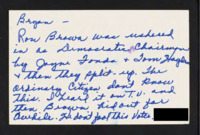 Bryan —
Ron Brown was ushered
in as Democratic Chairman
by Jayne Fonda & Tom Hayden
& then they split up. The
ordinary Citizen don't know
this. I heard it on T.V. and
then Browns hid out for
Awhile. He don't feel this Vote